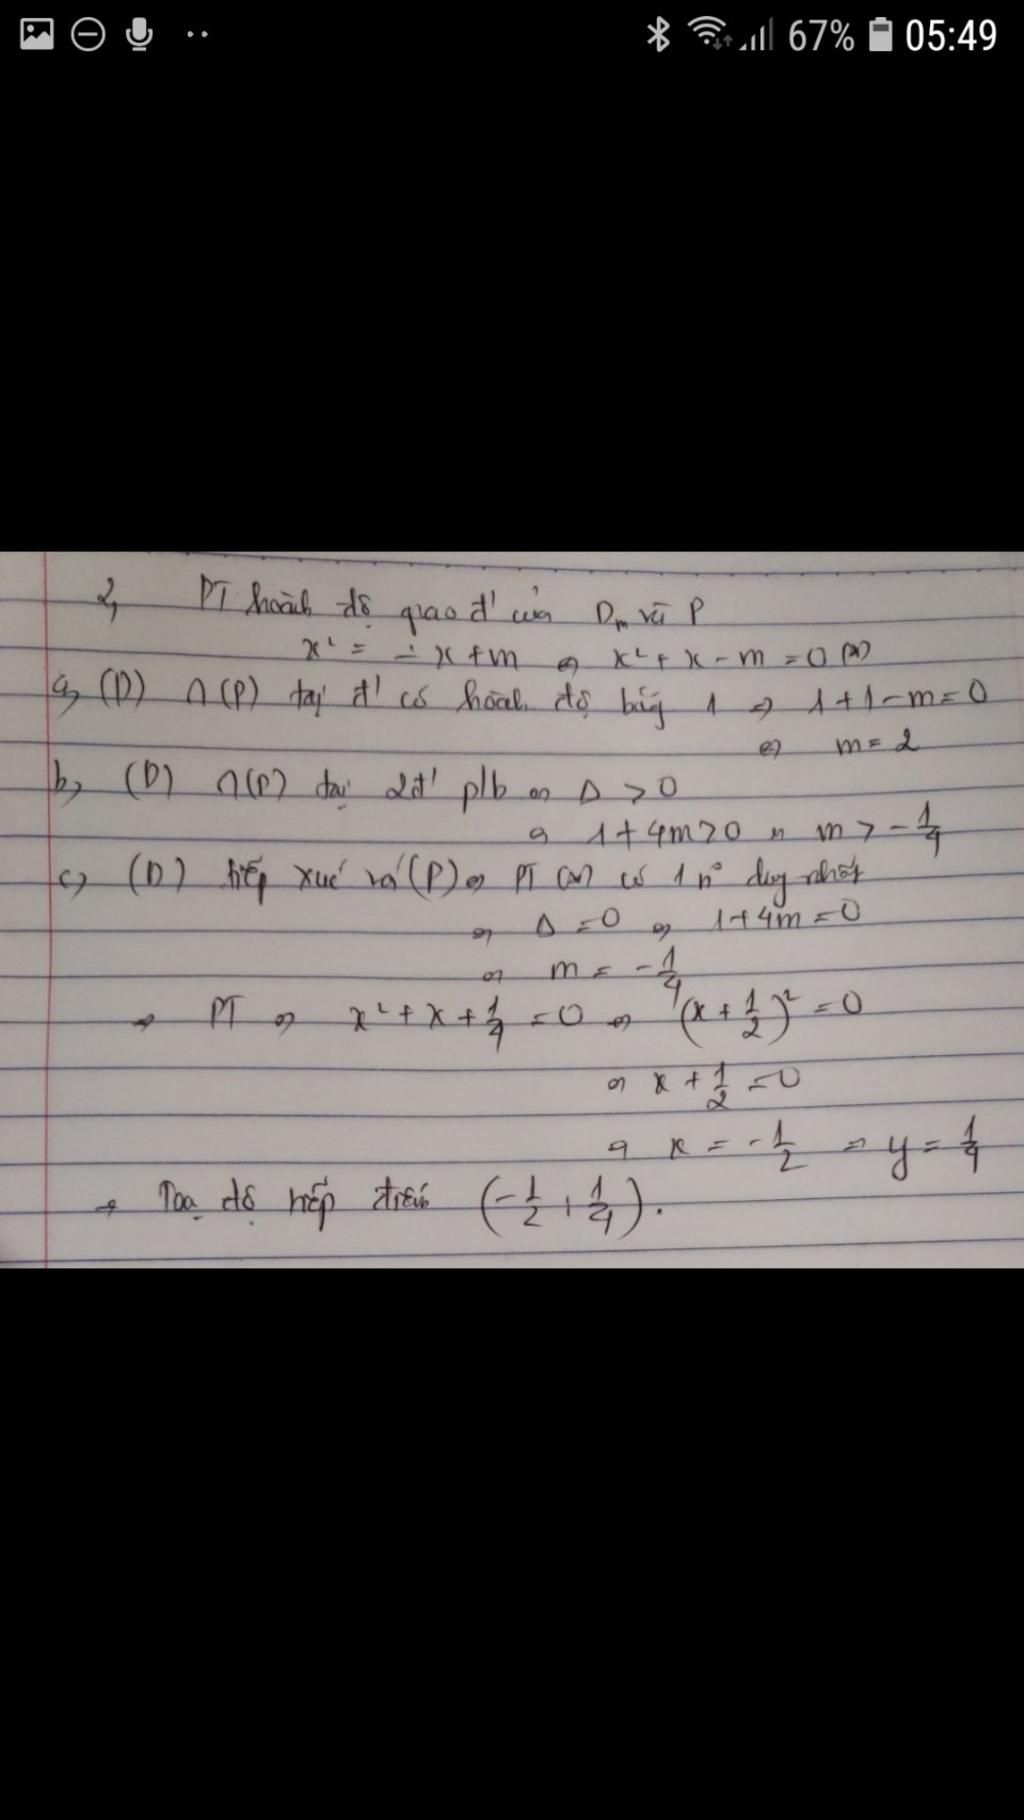 67% 05:49
2, PT hoành độ giao đ' của Dm và P
x² = - x + m ⇔ x² + x - m = 0 (*)
a, (D) ∩ (P) tại đ' có hoành độ bằg 1 ⇒ 1 + 1 - m = 0
⇔ m = 2
b, (D) ∩ (P) tại 2đ' p/b ⇔ Δ > 0
⇔ 1 + 4m > 0 ⇔ m > - 1/4
c, (D) tiếp xúc với (P) ⇔ PT (*) có 1 n° duy nhất
⇔ Δ = 0 ⇔ 1 + 4m = 0
⇔ m = - 1/4
→ PT ⇔ x² + x + 1/4 = 0 ⇔ (x + 1/2)² = 0
⇔ x + 1/2 = 0
⇔ x = - 1/2 ⇒ y = 1/4
→ Toạ độ tiếp điểm (- 1/2 , 1/4).